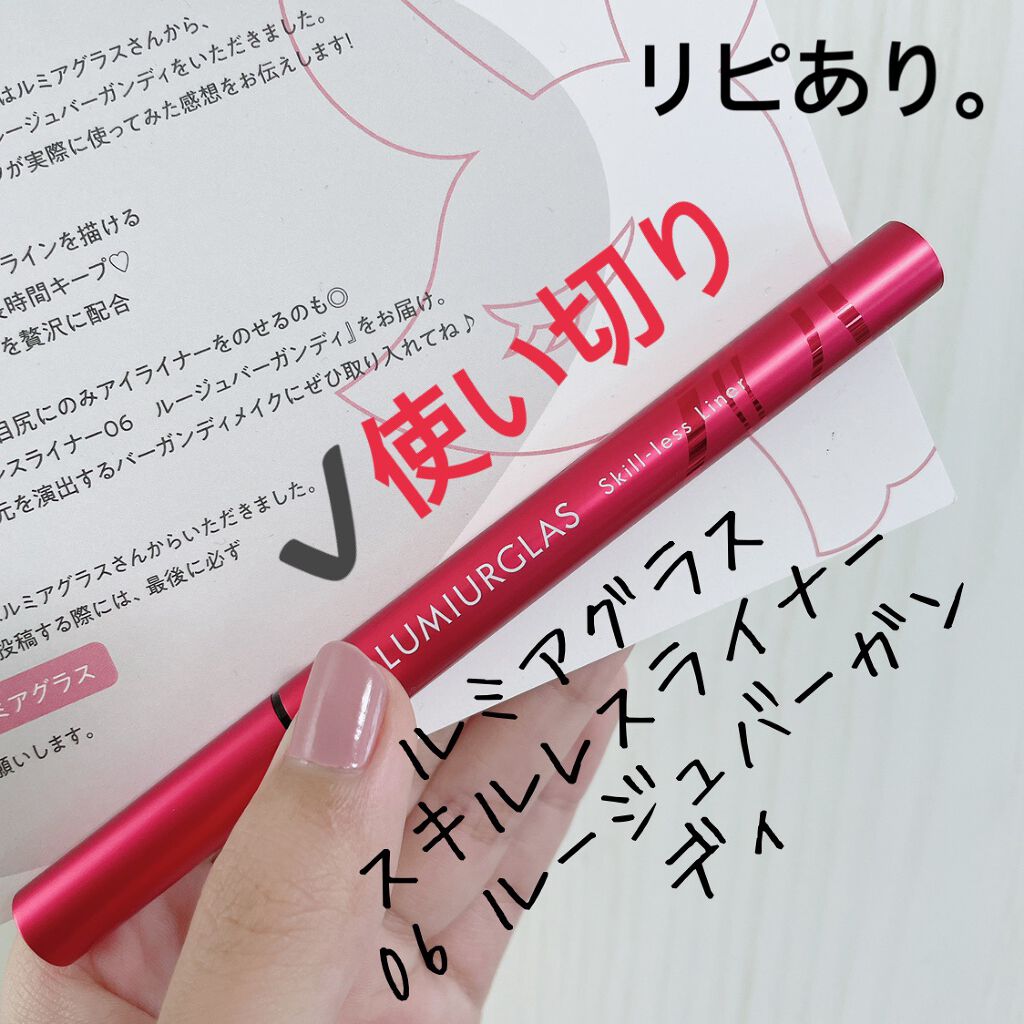 はルミアグラスさんから、
ルージュバーガンディをいただきました。
が実際に使ってみた感想をお伝えします!
ラインを描ける
時間キープ♡
を贅沢に配合
目尻にのみアイライナーをのせるのも◎
スライナー06 ルージュバーガンディ』をお届け。
元を演出するバーガンディメイクにぜひ取り入れてね♪
ルミアグラスさんからいただきました。
投稿する際には、最後に必ず
ミアグラス
願いします。
リピあり。
✓使い切り
LUMIURGLAS Skill-less Liner
ルミアグラス
スキルレスライナー
06 ルージュバーガン
ディ